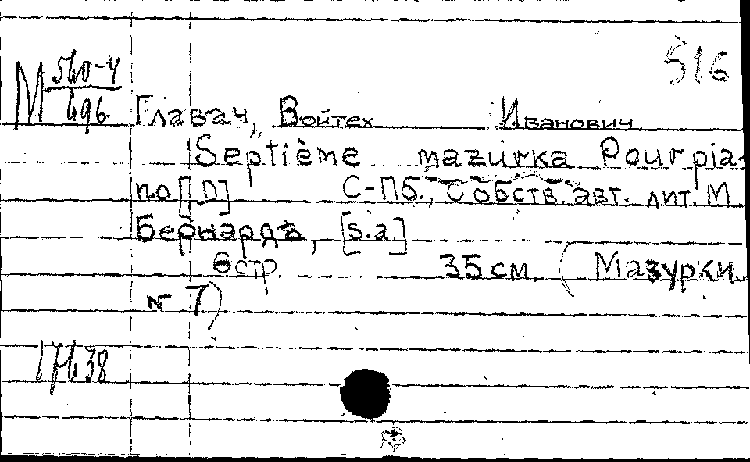 516
М 560-4/696
Главач, Войтех Иванович
Septième mazurka Pour pia-
no [D] С-Пб., Собств. авт. лит. М.
Бернардъ, [s.a]
стр. 35 см (Мазурки
№ 7)
17638